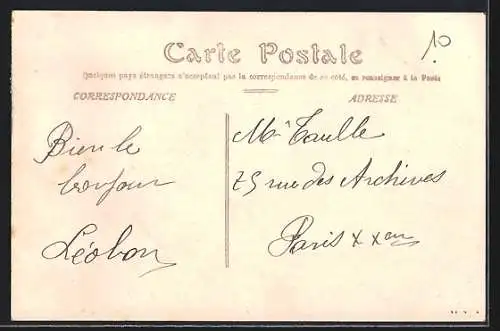 Carte Postale
10
Quelques pays étrangers n'acceptent pas la correspondance de ce côté, se renseigner à la Poste
CORRESPONDANCE
ADRESSE
Bien le
bonjour
Léobon
Mr Taulle
75 rue des Archives
Paris xxem